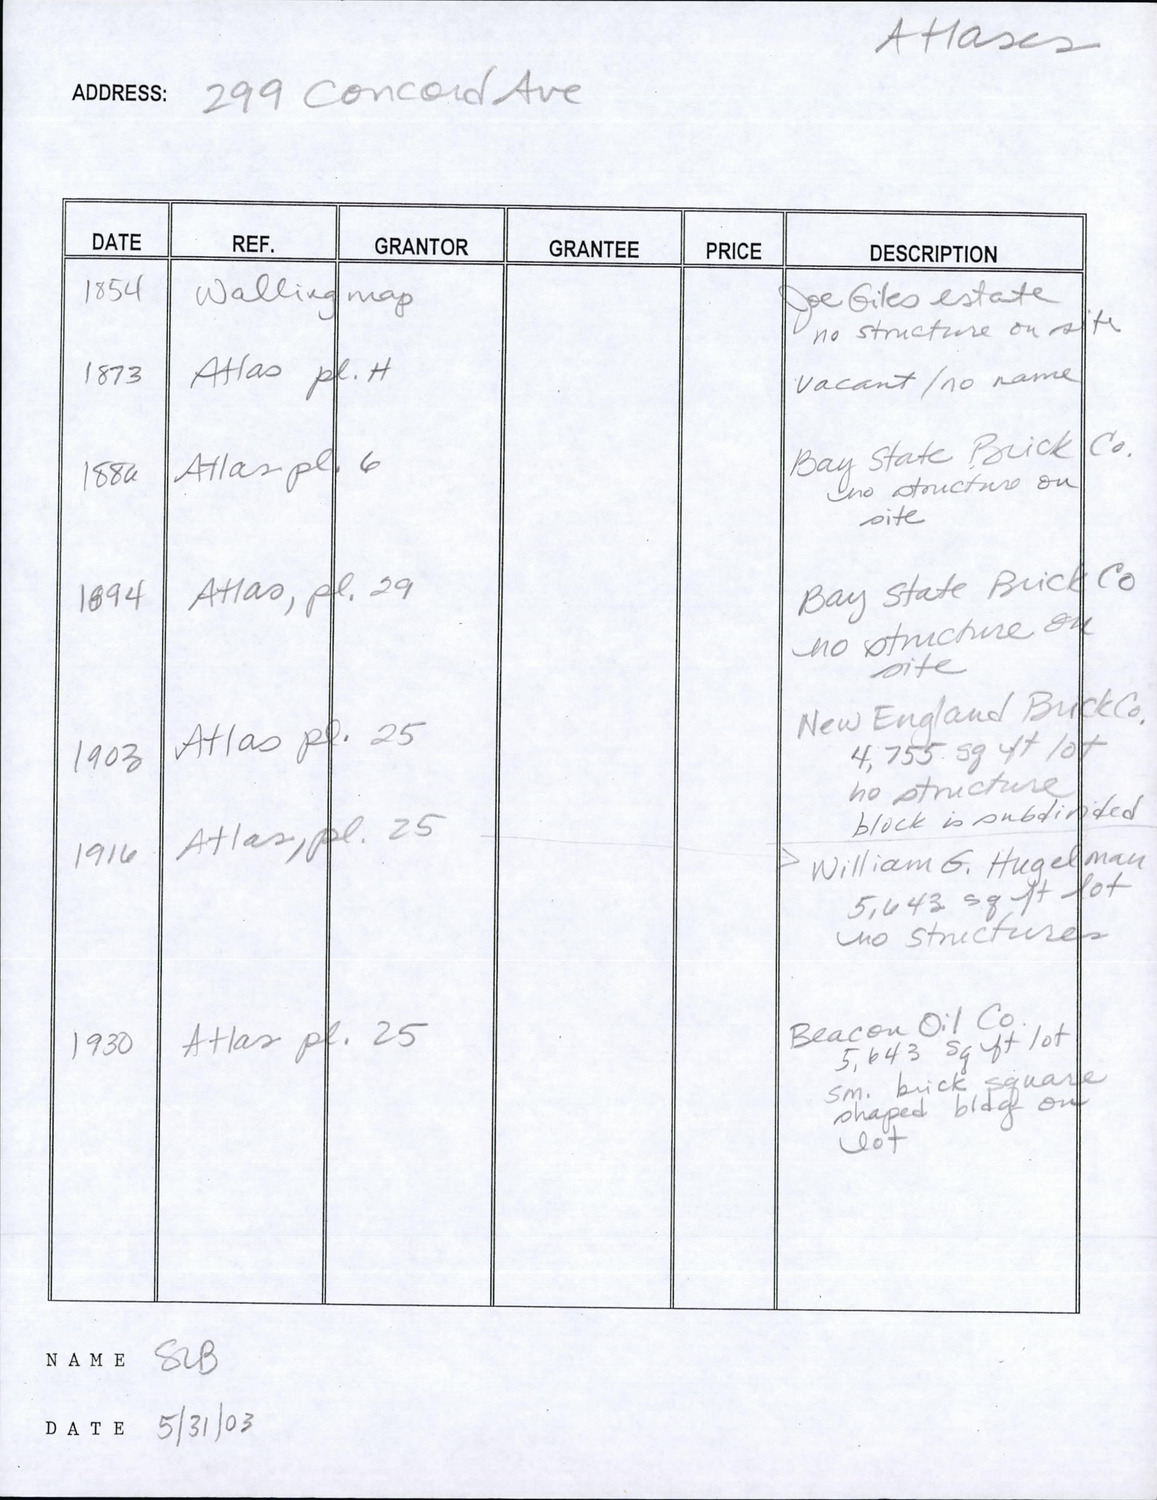 Atlases
ADDRESS: 299 Concord Ave
DATE REF. GRANTOR GRANTEE PRICE DESCRIPTION
1854 Walling map Joe Giles estate
no structure on site
1873 Atlas pl. H vacant/no name
1886 Atlas pl. 6 Bay State Brick Co.
no structure on
site
1894 Atlas, pl. 29 Bay State Brick Co
no structure on
site
1903 Atlas pl. 25 New England Brick Co.
4,755 sq ft lot
no structure
block is subdivided
1916 Atlas, pl. 25 > William G. Hugelman
5,643 sq ft lot
no structures
1930 Atlas pl. 25 Beacon Oil Co.
5,643 sq ft lot
sm. brick square
shaped bldg on
lot
NAME SLB
DATE 5/31/03